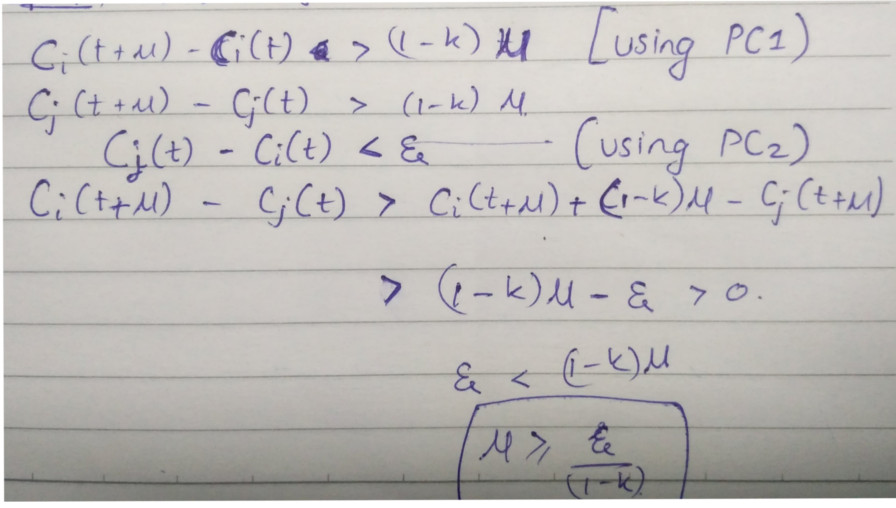 C_i(t+μ) - C_i(t) > (1-k) μ [using PC1)
C_j(t+μ) - C_j(t) > (1-k) μ
C_j(t) - C_i(t) < ε (using PC2)
C_i(t+μ) - C_j(t) > C_i(t+μ) + (1-k)μ - C_j(t+μ)
> (1-k)μ - ε > 0.
ε < (1-k)μ
μ ⩾ ε/(1-k)